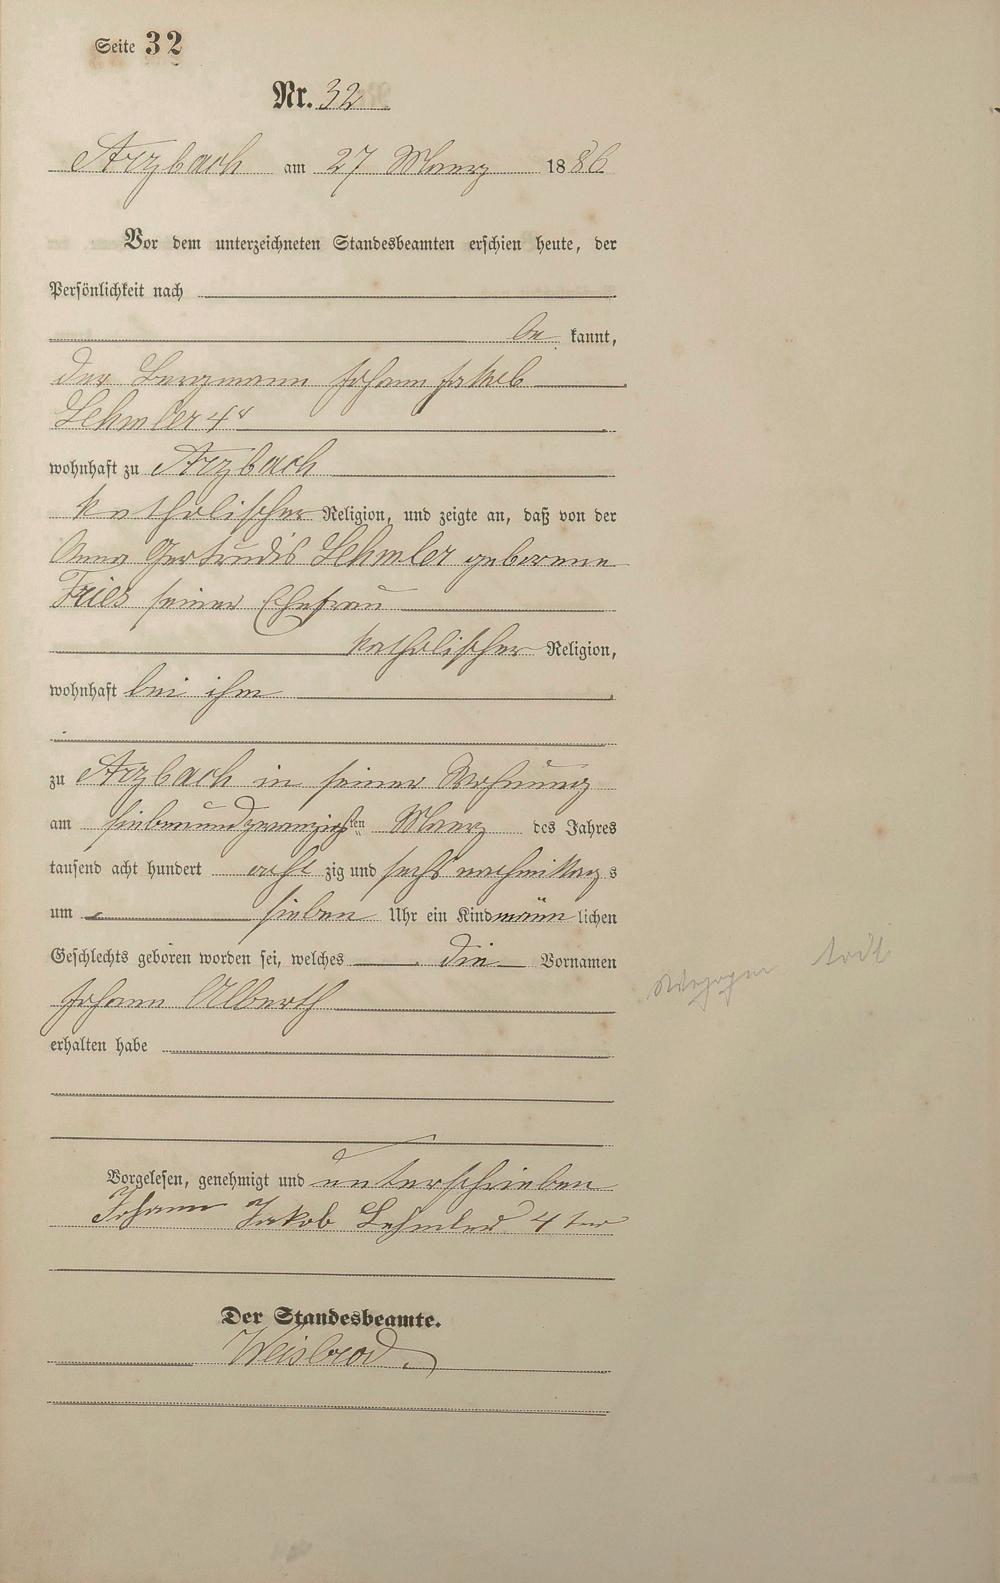 Seite 32
Nr. 32
Arzbach am 27 Maerz 1886
Vor dem unterzeichneten Standesbeamten erschien heute, der
Persönlichkeit nach
be kannt,
der Bergmann Johann Jakob
Lehmler 4r
wohnhaft zu Arzbach
katholischer Religion, und zeigte an, daß von der
Anna Gertrudis Lehmler geborene
Fries seiner Ehefrau
katholischer Religion,
wohnhaft bei ihm
zu Arzbach in seiner Wohnung
am siebenundzwanzigsten Maerz des Jahres
tausend acht hundert acht zig und sechs nachmittags
um sieben Uhr ein Kind männlichen
Geschlechts geboren worden sei, welches die Vornamen
Johann Alberth
erhalten habe
Vorgelesen, genehmigt und unterschrieben
Johann Jakob Lehmler 4ter
Der Standesbeamte.
Weisbrod